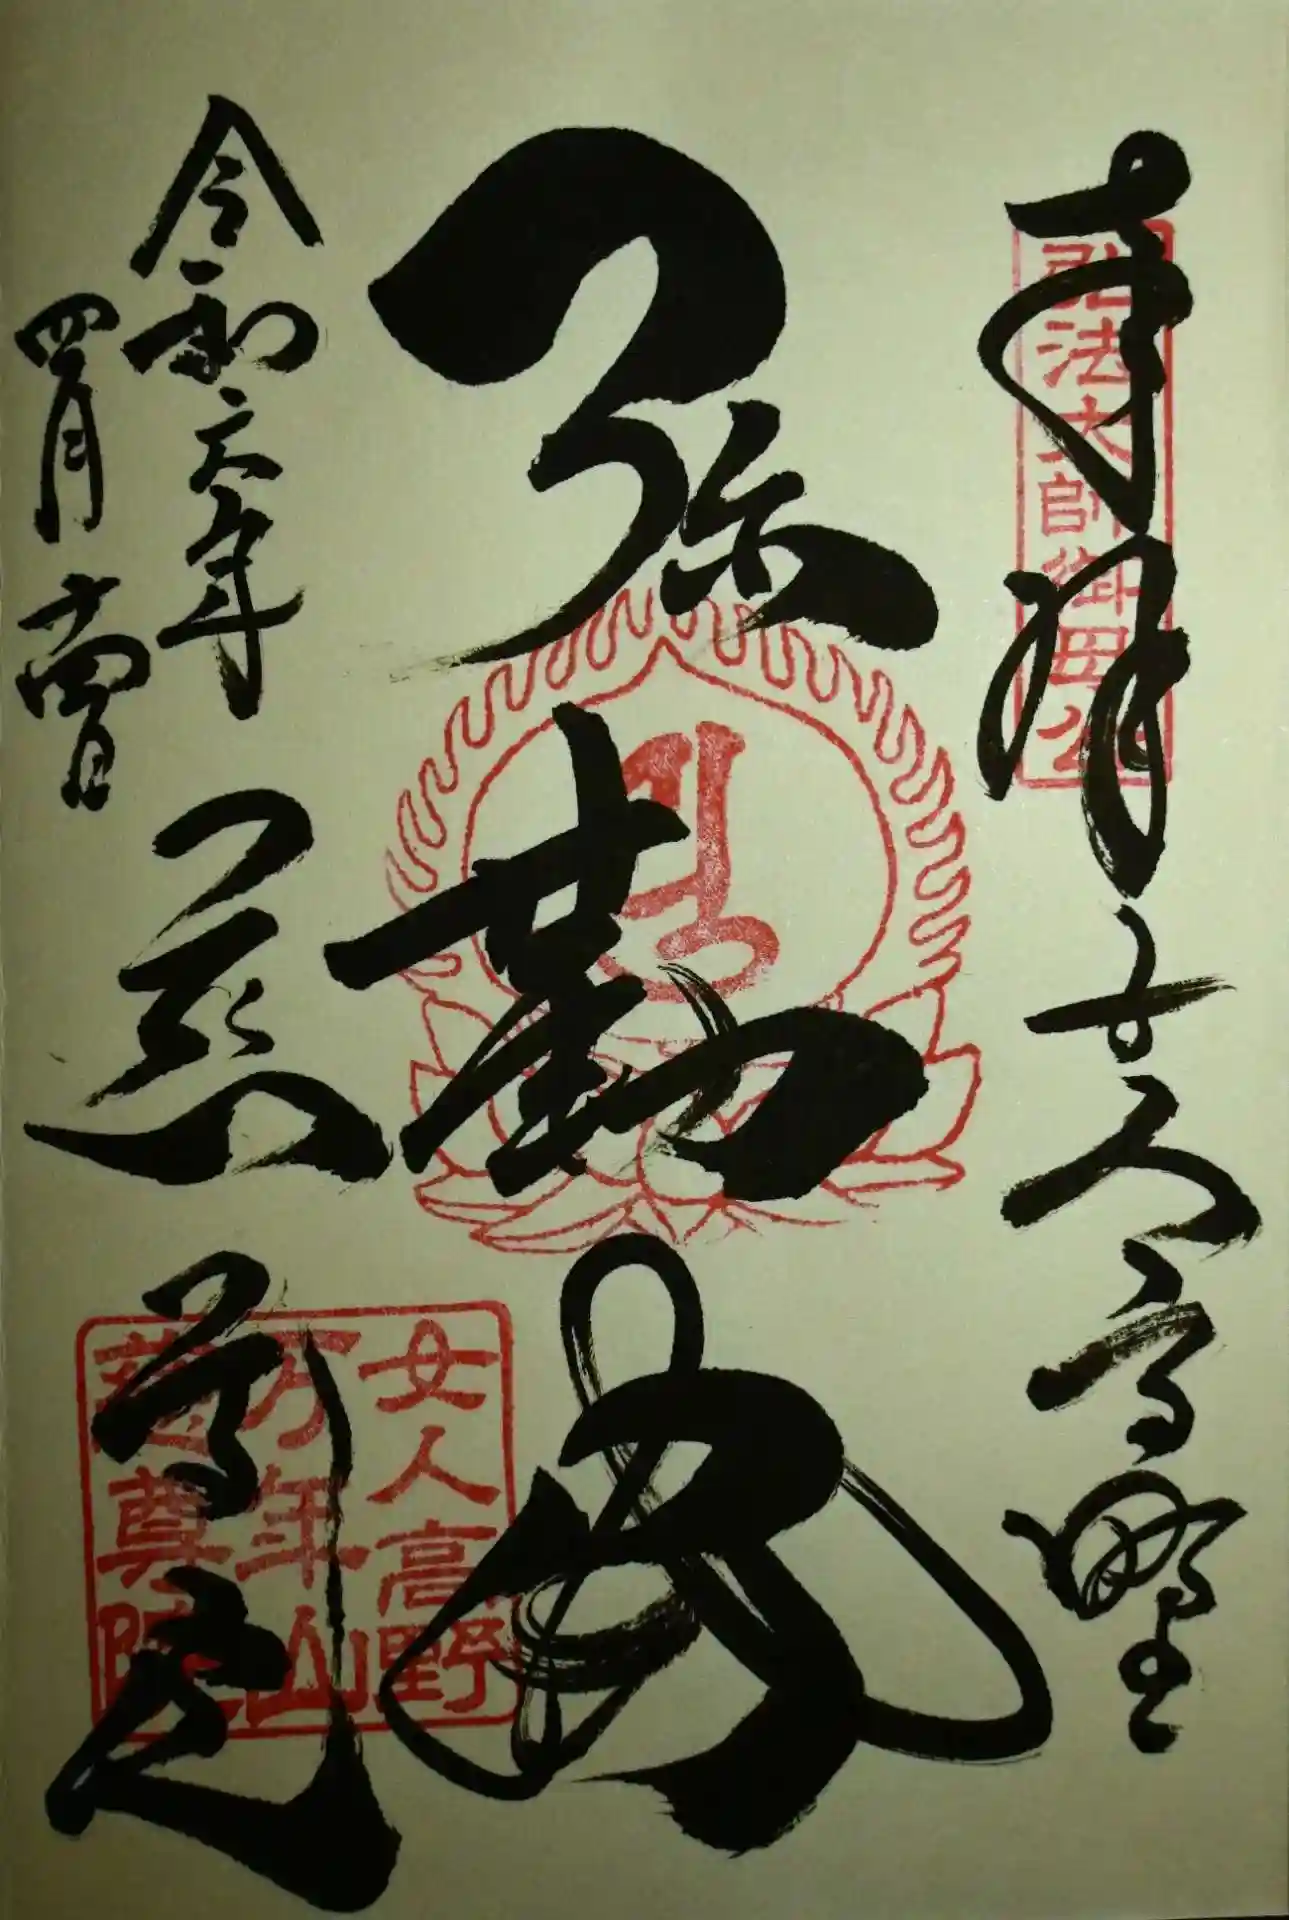 奉拝 女人高野
弘法大師御母公
弥勒
令和六年
四月十四日
慈尊院
女人高野
万年山
慈尊院